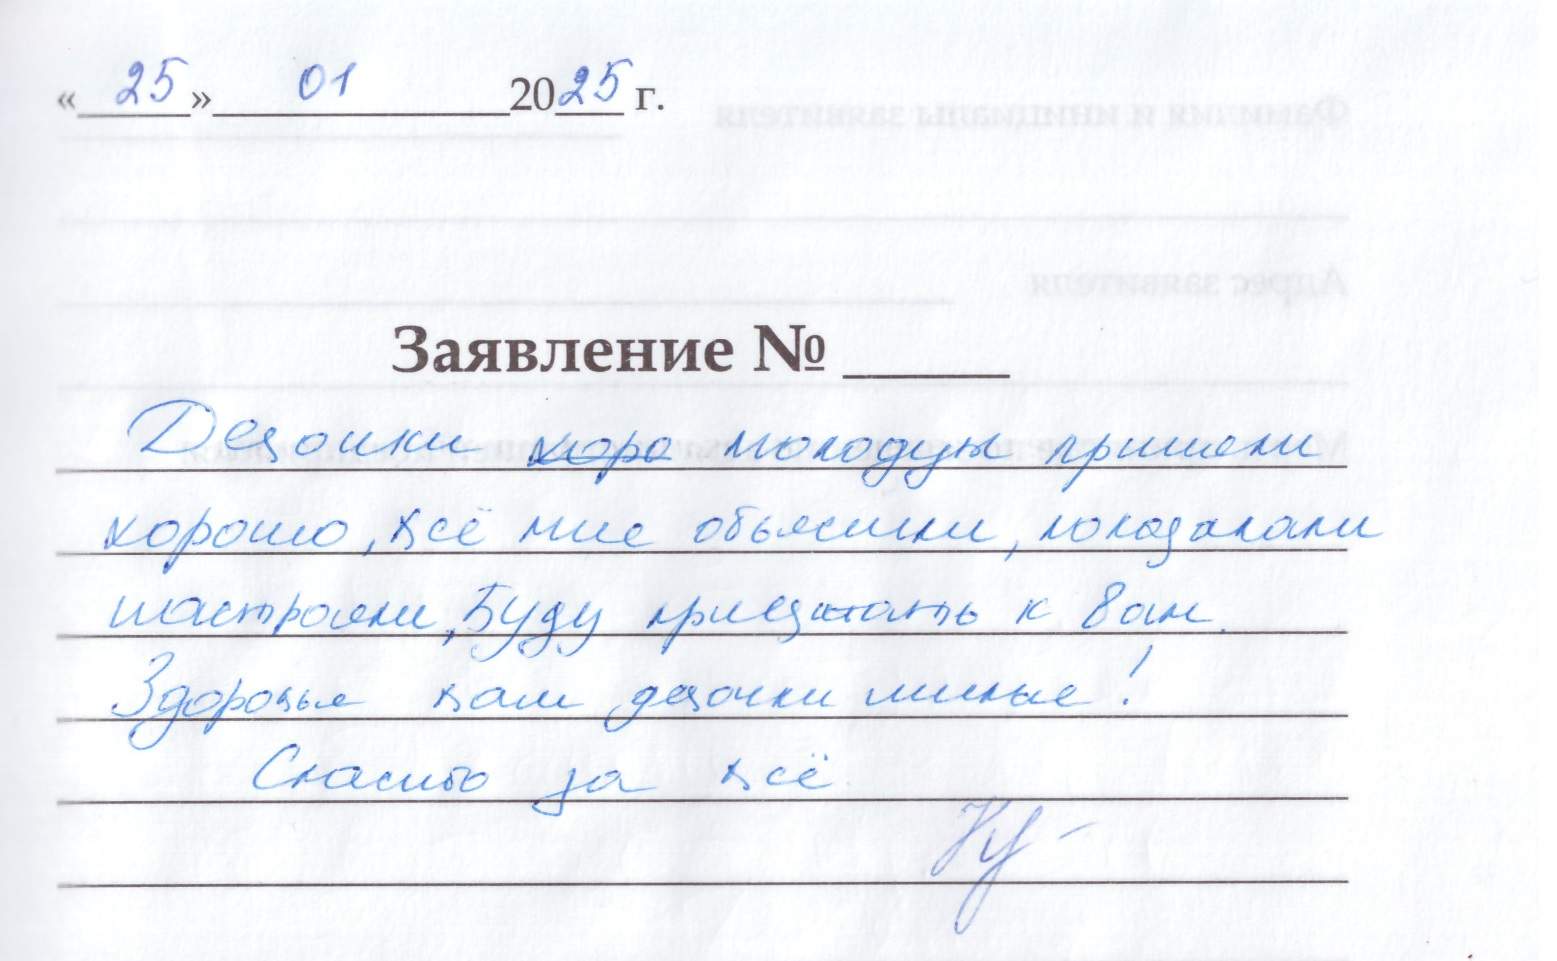 «25» 01 2025 г.
Заявление № 
Девочки молодцы приняли
хорошо, всё мне объяснили, показали
настроили, Буду приезжать к Вам.
Здоровья вам девочки милые!
Спасибо за всё